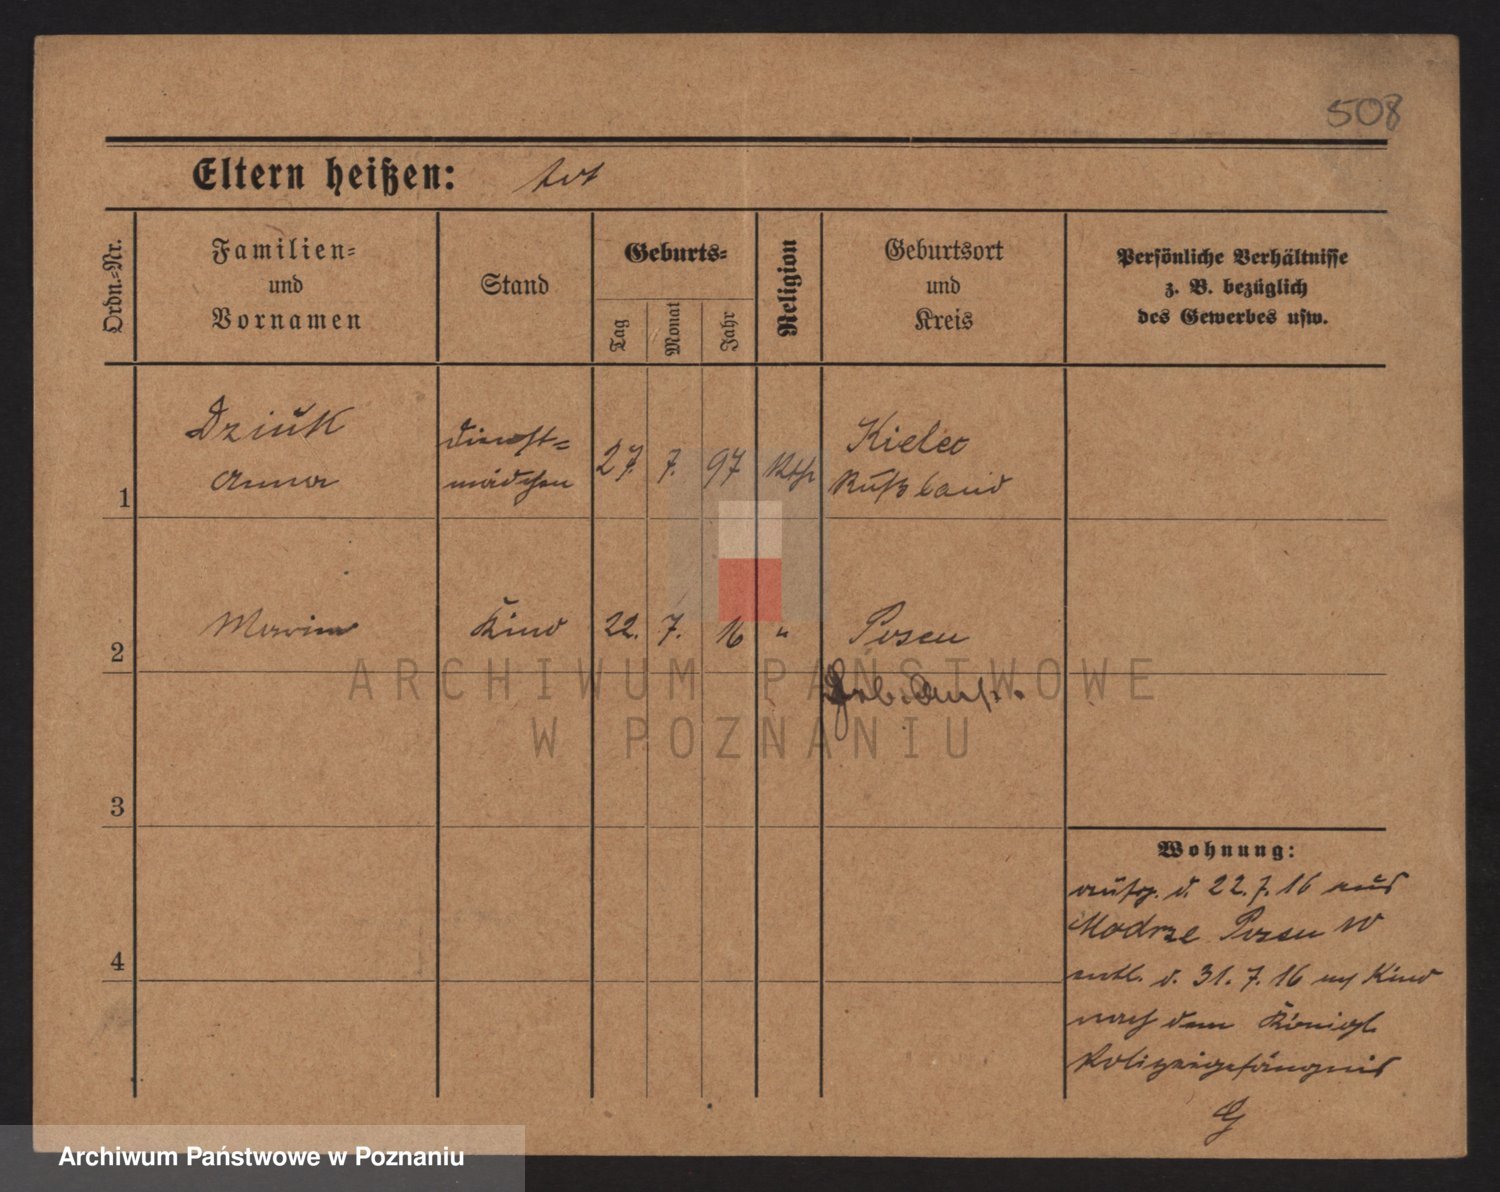 508
Eltern heißen: tot
Ordn.-Nr.
Familien-
und
Vornamen
Stand
Geburts-
Tag
Monat
Jahr
Religion
Geburtsort
und
Kreis
Persönliche Verhältnisse
z. B. bezüglich
des Gewerbes usw.
1
Dziuk
Anna
Dienst-
mädchen
27. 7. 97
Kth
Kielec
Rußland
2
Maria
Kind
22. 7. 16
"
Posen
Geb. Anst.
3
4
Wohnung:
aufg. d. 22.7.16 aus
Modrze Posen W
entl. d. 31.7.16 Kind
nach dem Königl
Polizeigefängnis
G
ARCHIWUM PAŃSTWOWE
W POZNANIU
Archiwum Państwowe w Poznaniu